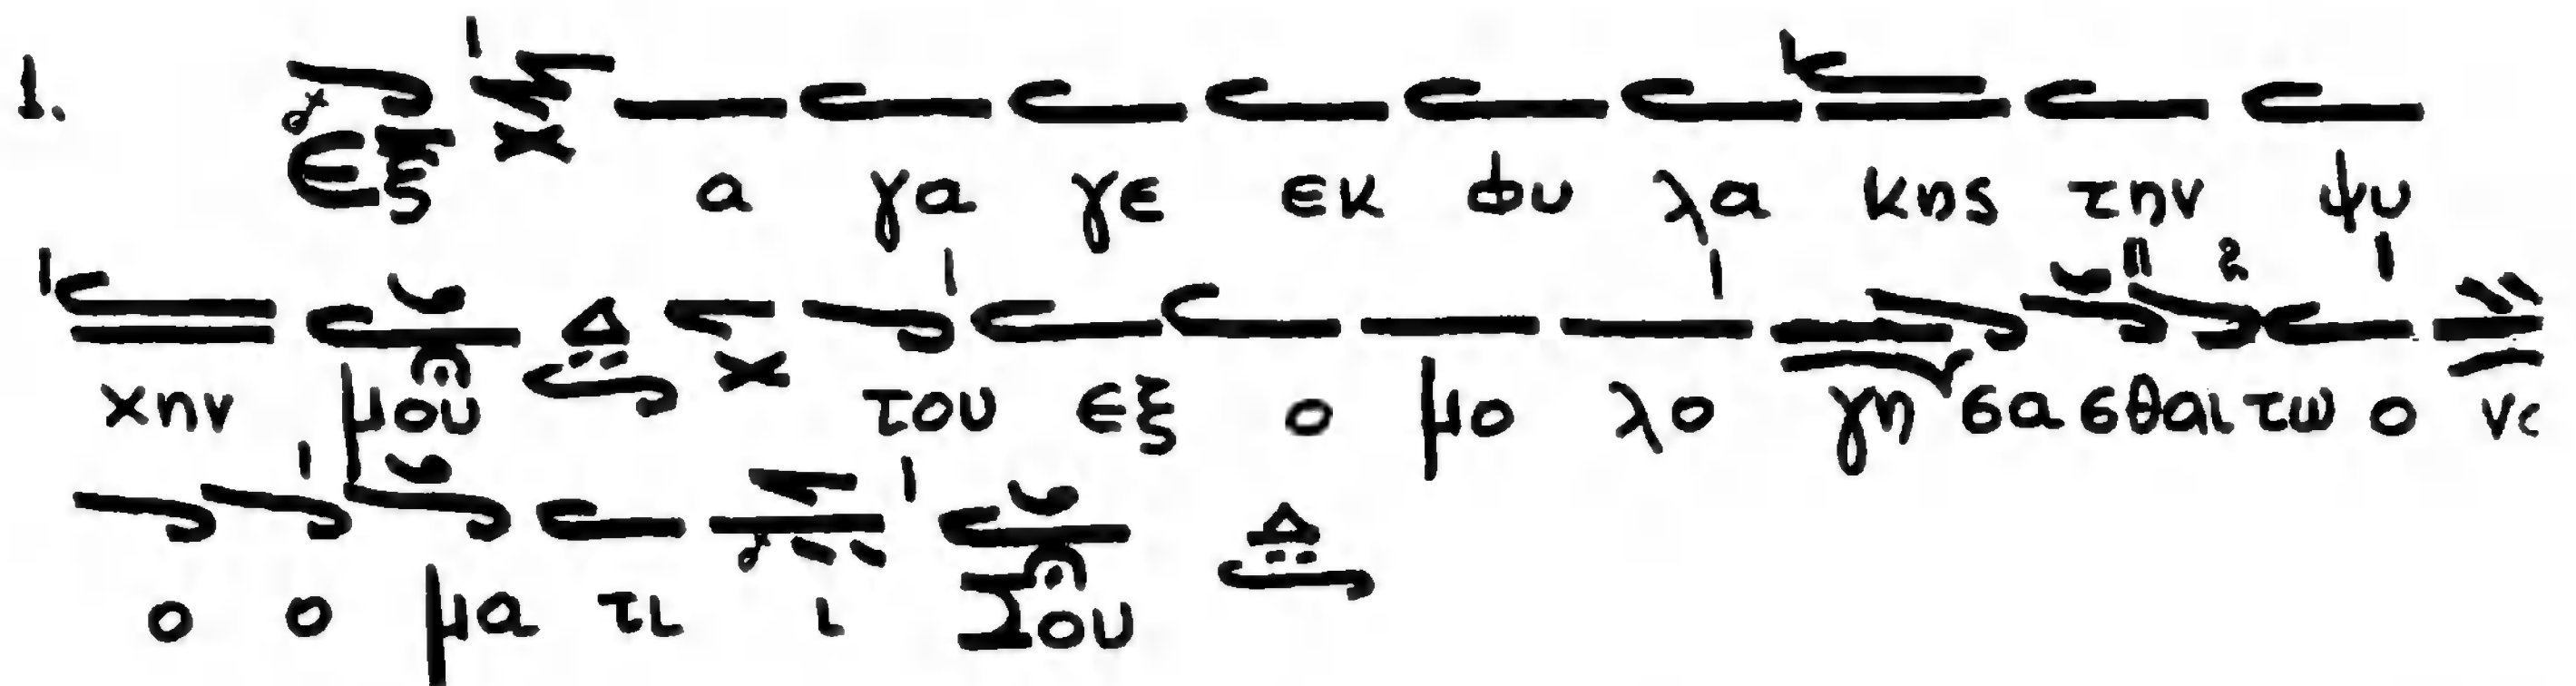 1. εξ α γα γε εκ φυ λα κης την ψυ
χην μου του εξ ο μο λο γη σα σθαι τω ο νο
ο ο μα τι ι Σου